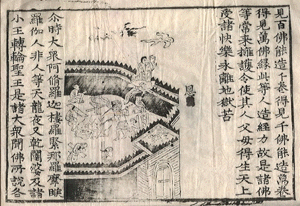 見百佛能造千卷得見千佛能造萬卷
得見萬佛緣此等人造經力故是諸佛
等常來擁護令使其人父母得生天上
受諸快樂永離地獄苦
尒時大衆阿修羅迦樓羅緊那羅摩睺
羅伽人非人等天龍夜叉乾闥婆及諸
小王轉輪聖王是諸大衆聞佛所說各